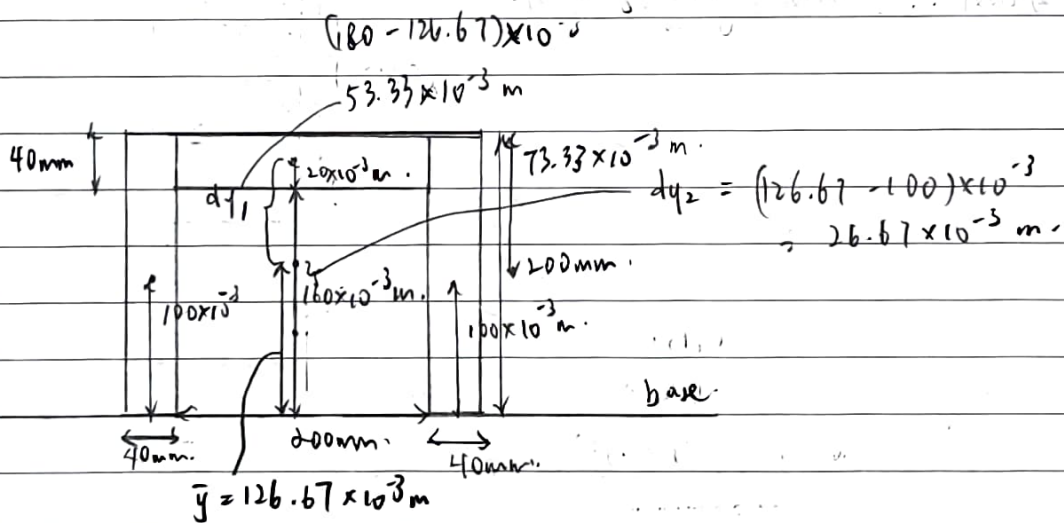 (180 - 126.67)×10⁻³
53.33×10⁻³ m
40mm
20×10⁻³ m.
73.33×10⁻³ m.
dy₁
dy₂ = (126.67 - 100)×10⁻³
= 26.67×10⁻³ m.
200mm.
100×10⁻³
160×10⁻³ m.
100×10⁻³ m.
base.
40mm.
200mm.
40mm.
ȳ = 126.67×10⁻³ m